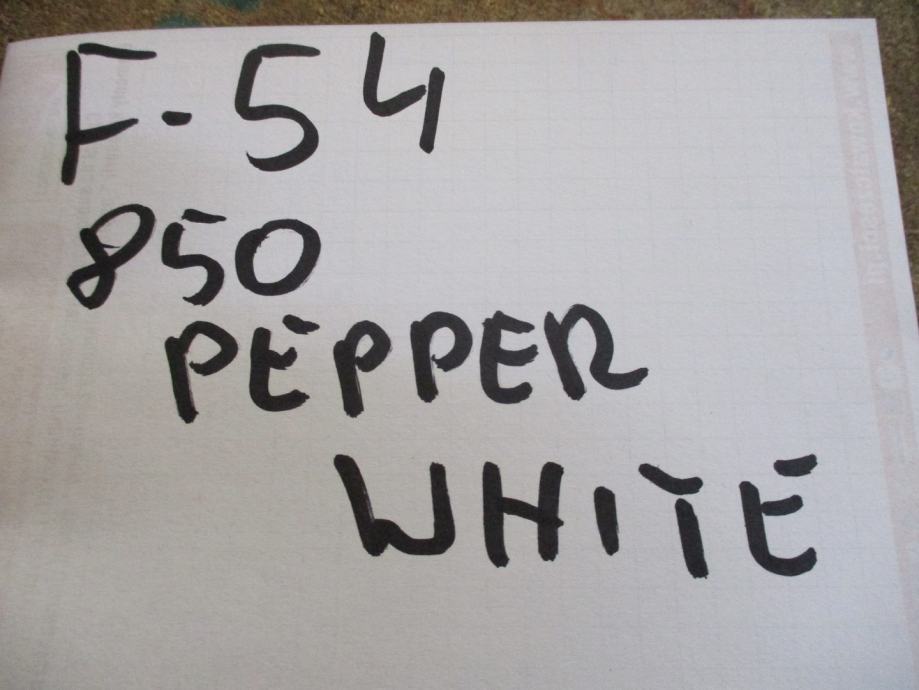 F-54
850
PEPPER
WHITE